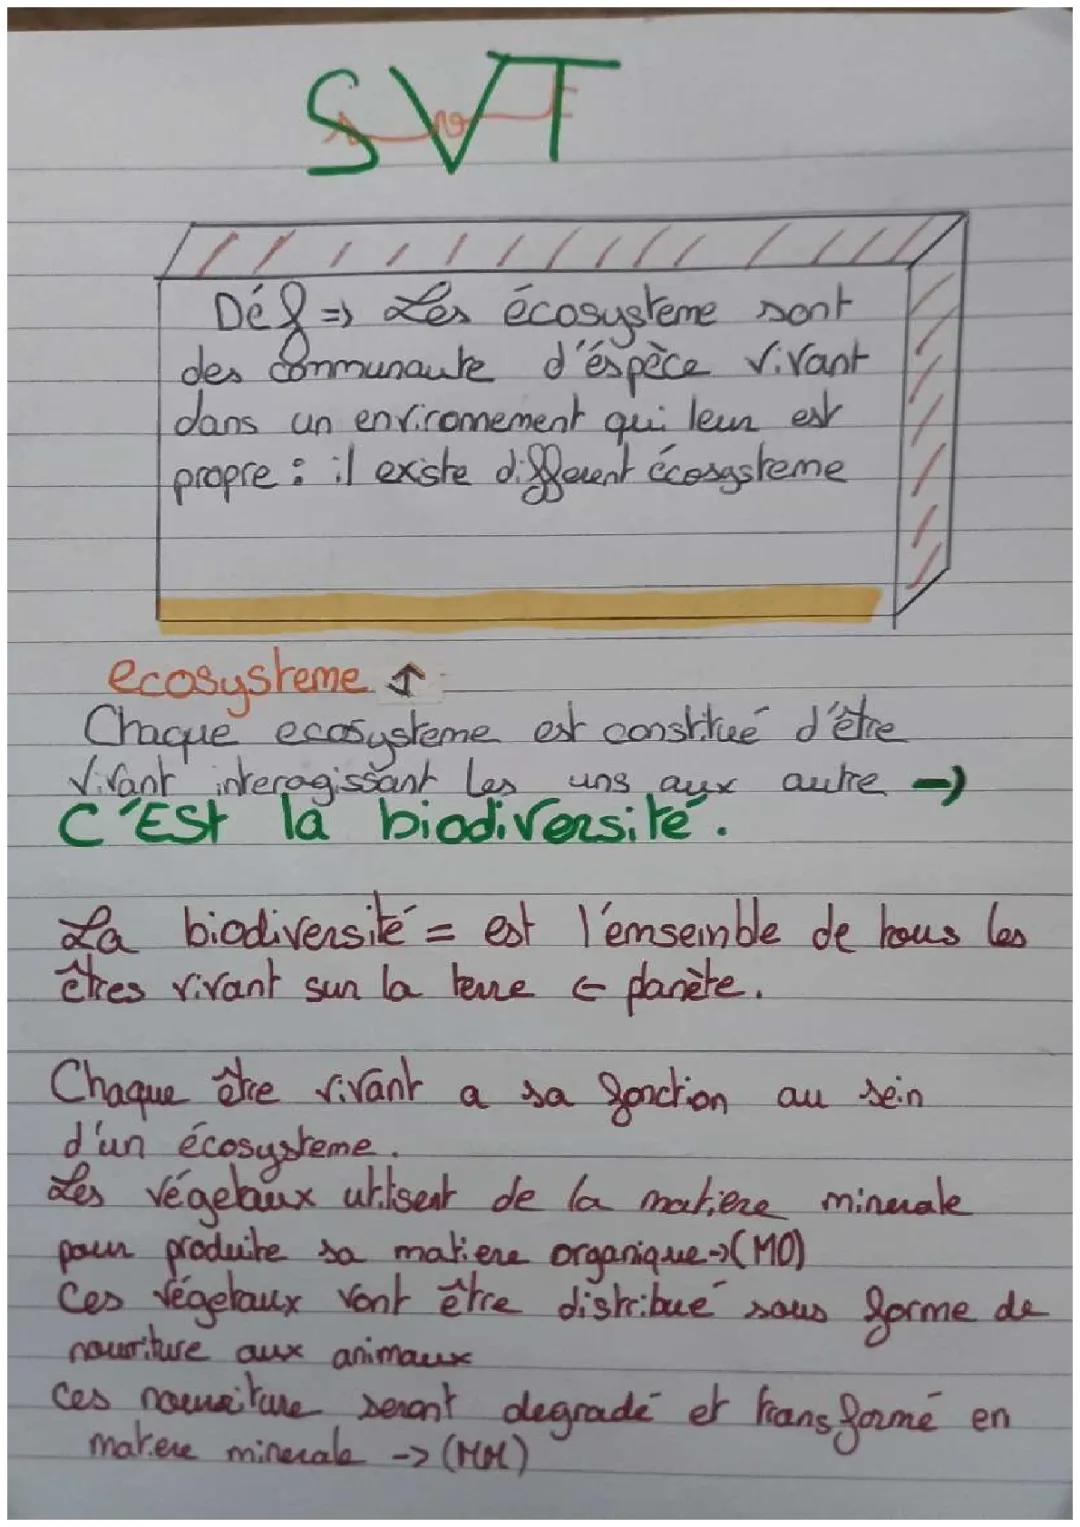 SVT
Déf => Les écosysteme sont
des communaute d'éspèce vivant
dans un environement qui leur est
propre : il existe different écosysteme
ecosysteme ↑
Chaque ecosysteme est constitué d'être
vivant interagissant les uns aux autre →
C'Est la biodiversité.
La biodiversité = est l'emseinble de tous les
êtres vivant sur la terre ← planète.
Chaque être vivant a sa fonction au sein
d'un écosysteme.
Les végetaux utilisent de la matiere minerale
pour produite sa matiere organique->(MO)
Ces végetaux vont être distribué sous forme de
nourriture aux animaux
Ces nourriture seront degradé et transformé en
matiere minerale -> (MM)